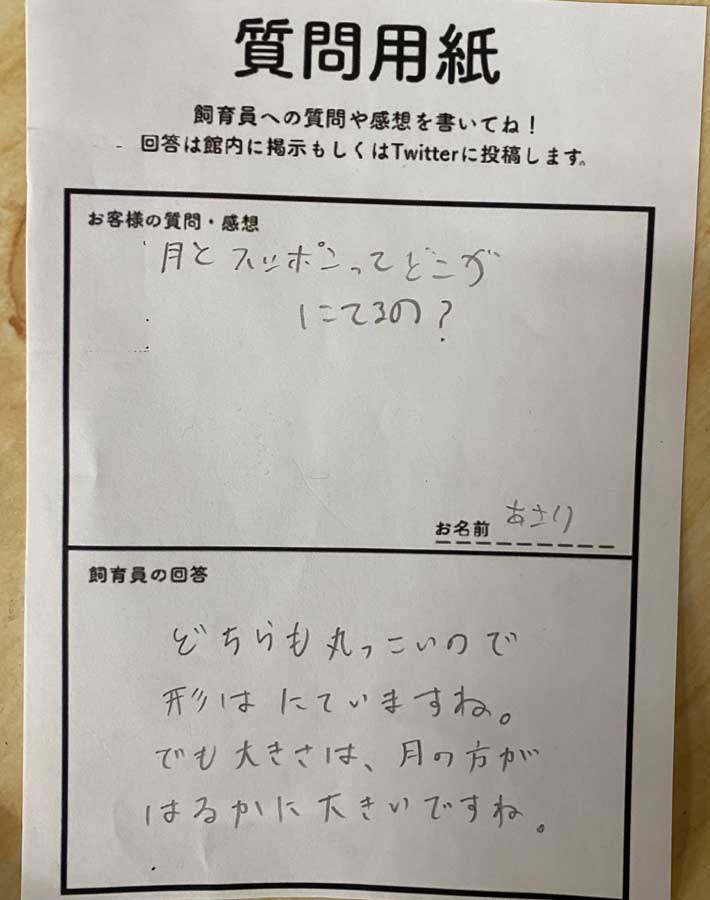 質問用紙
飼育員への質問や感想を書いてね！
回答は館内に掲示もしくはTwitterに投稿します。
お客様の質問・感想
月とスッポンってどこが
にてるの？
お名前 あさり
飼育員の回答
どちらも丸っこいので
形はにていますね。
でも大きさは、月の方が
はるかに大きいですね。